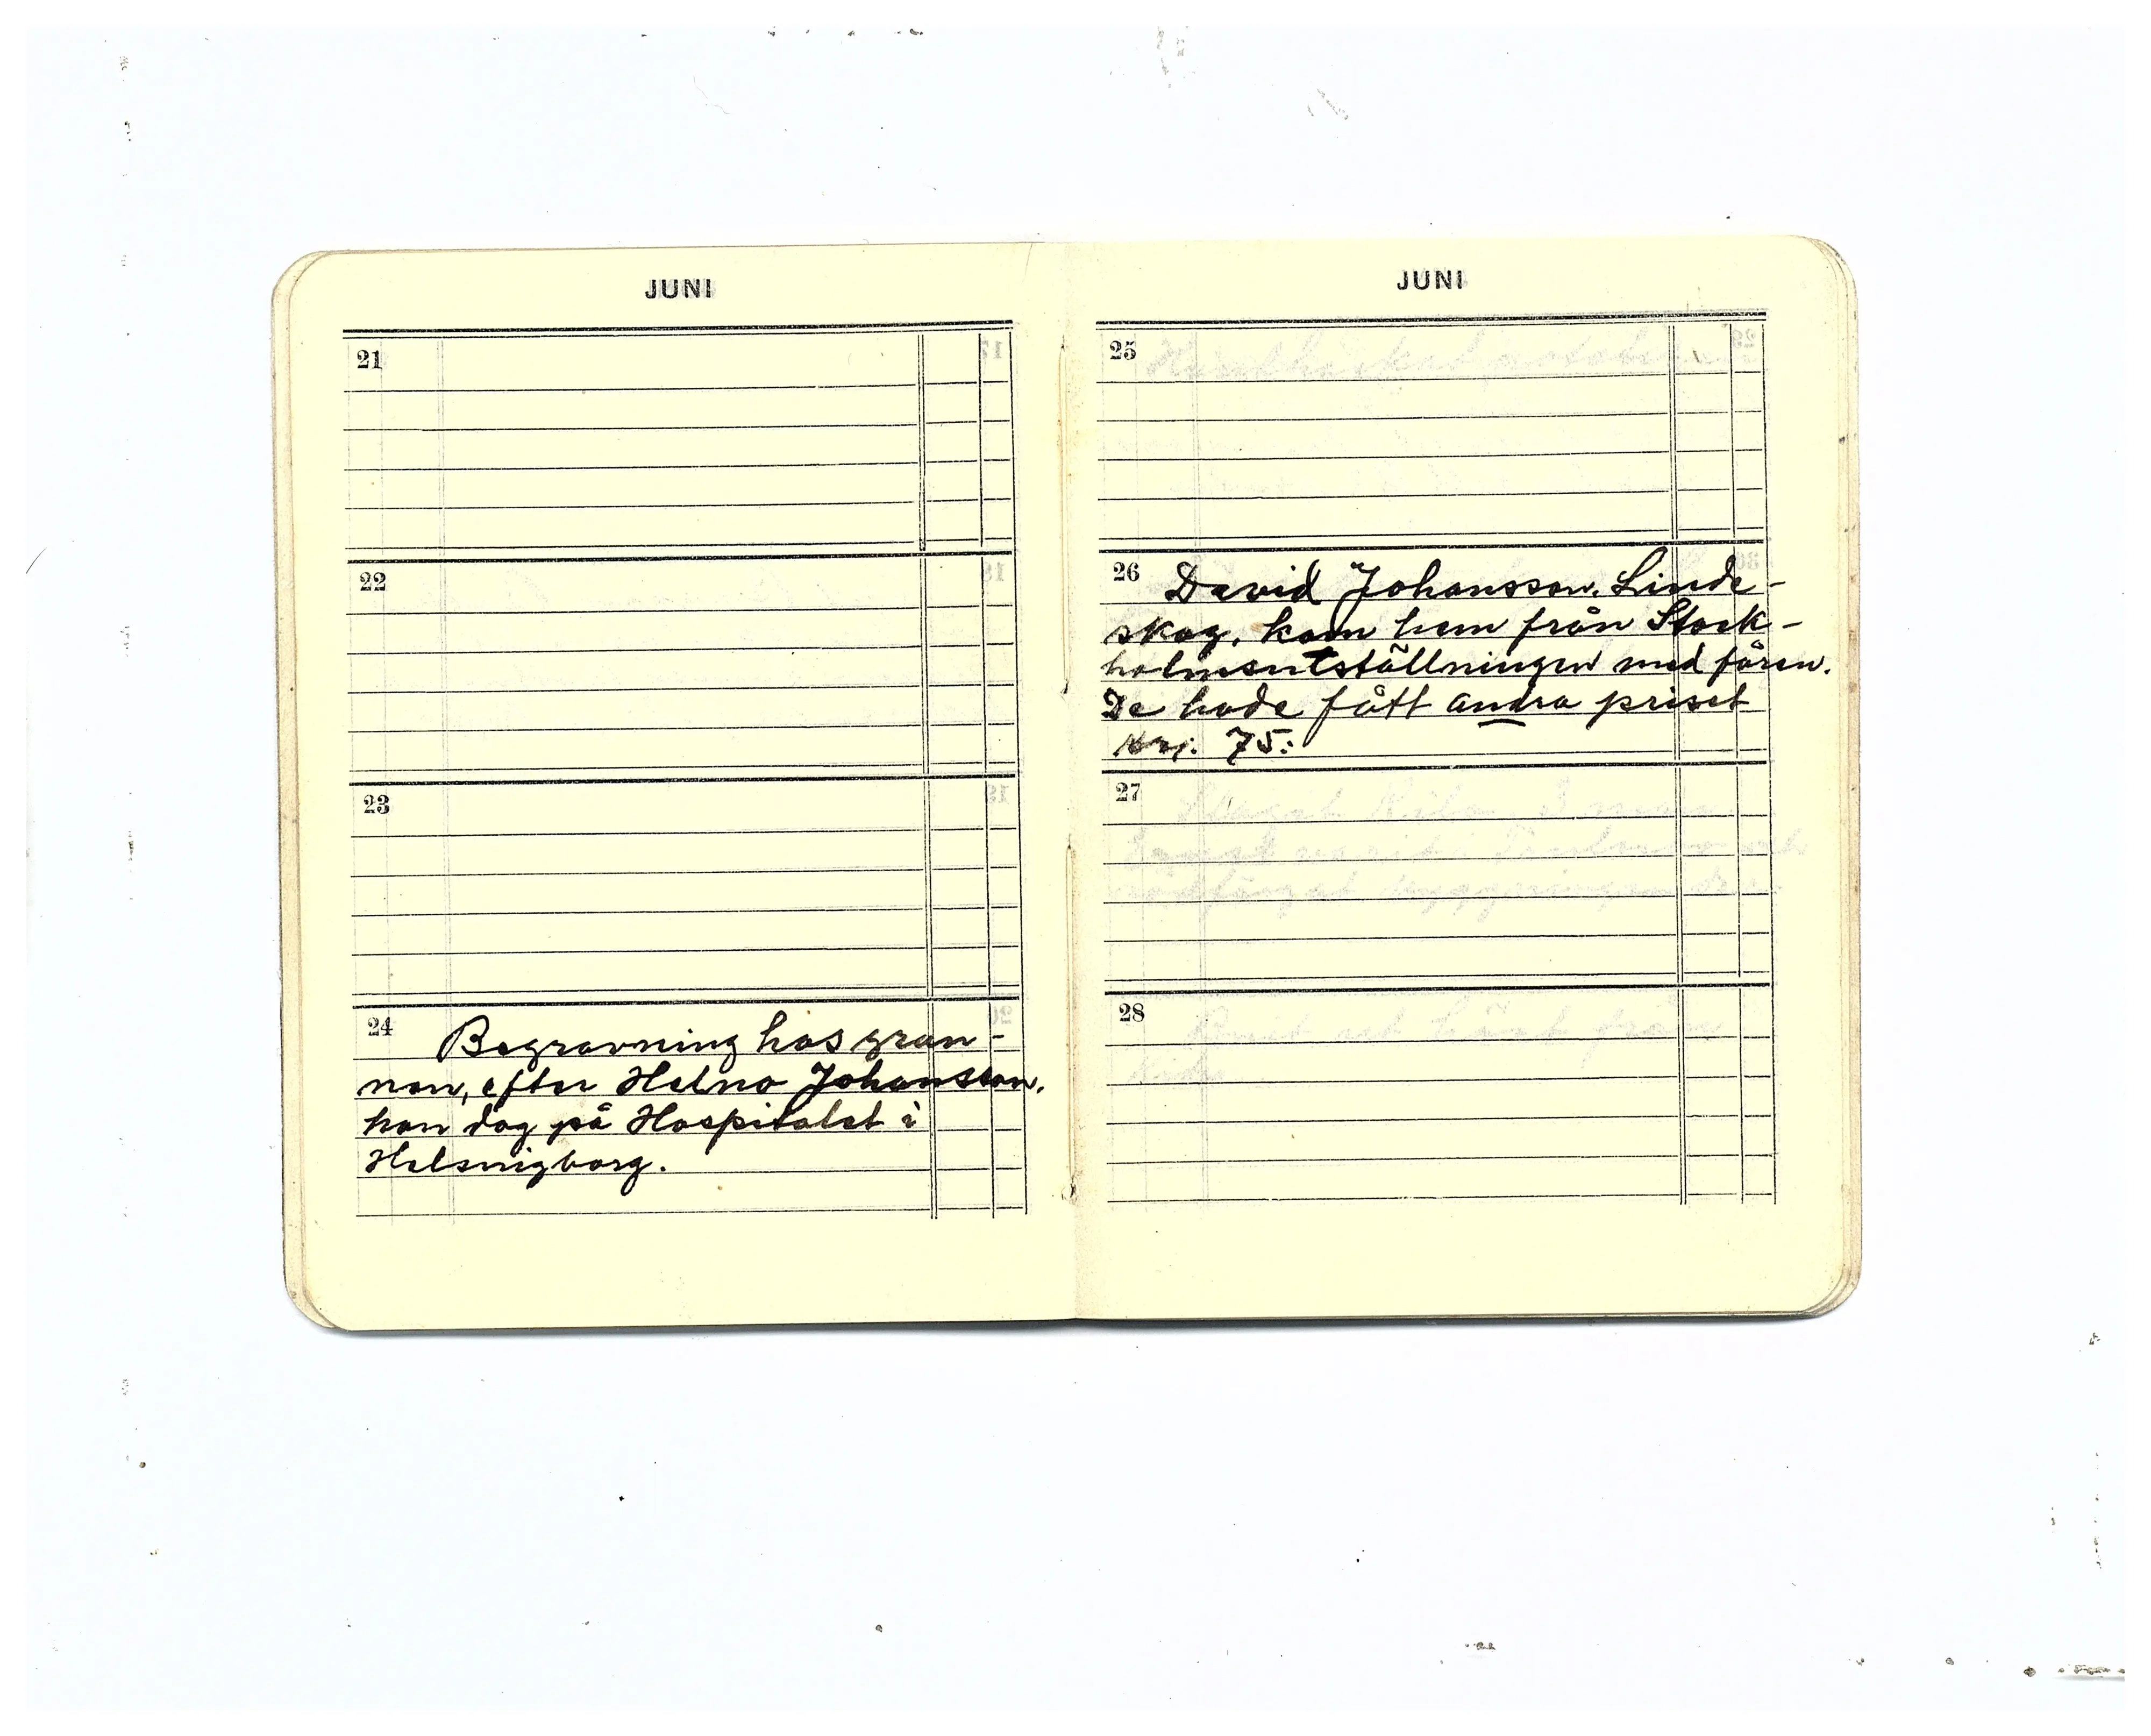 JUNI
21
22
23
24 Begravning hos gran-
nen, efter Helno Johansson.
han dog på Hospitalet i
Helsingborg.
JUNI
25
26 David Johansson. Linde-
skog, kom hem från Stock-
holmsutställningen med fåren.
De hade fått andra priset
Kr: 75:
27
28